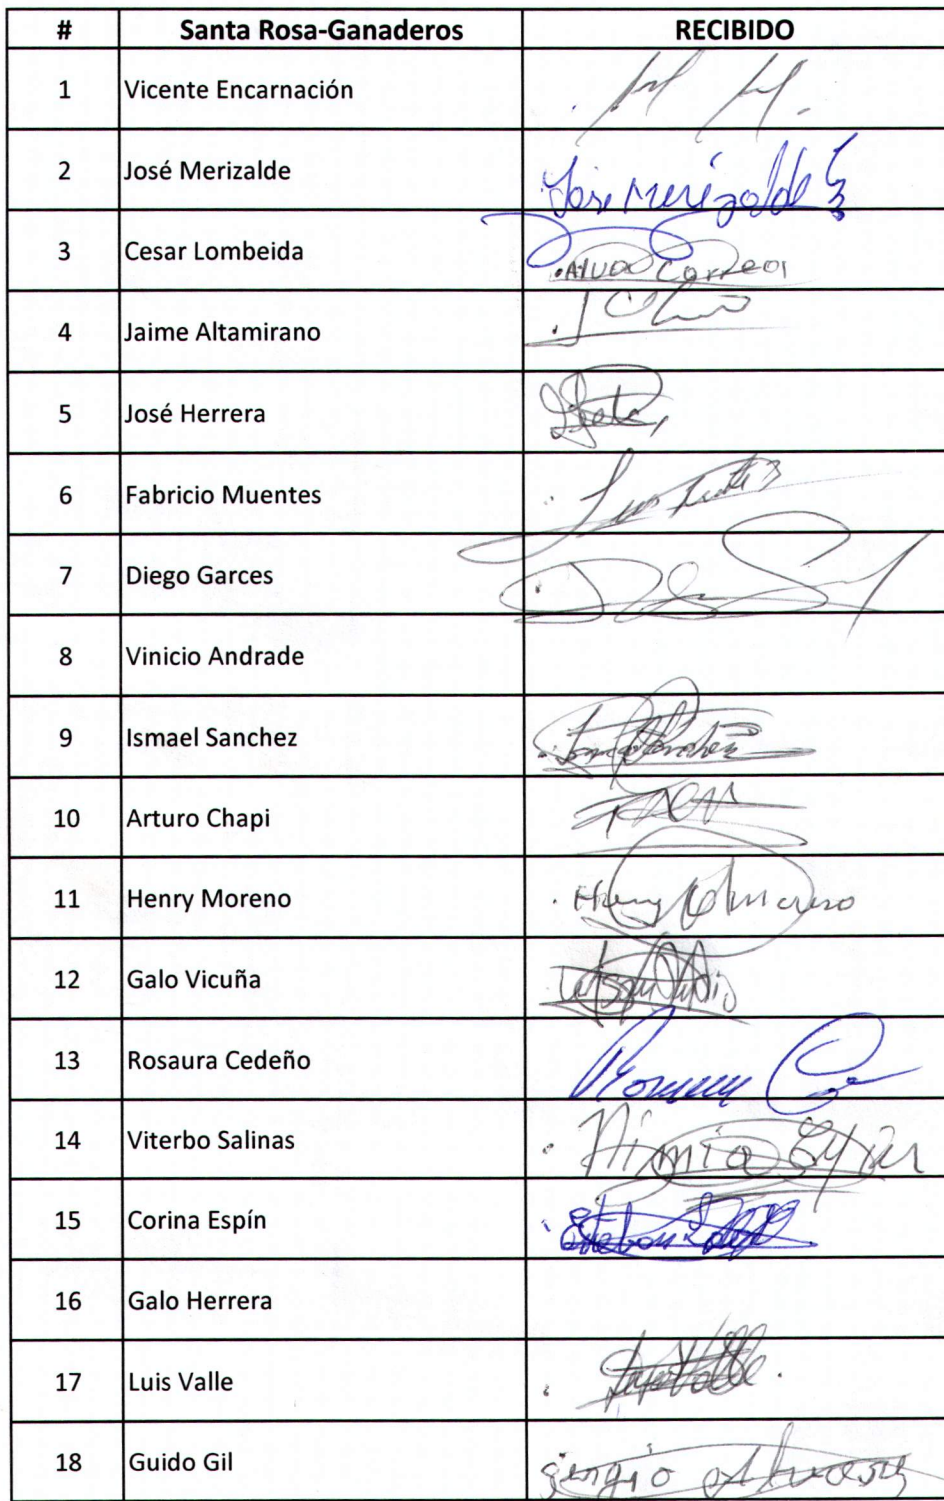 # Santa Rosa-Ganaderos RECIBIDO
1 Vicente Encarnación
2 José Merizalde José Merizalde
3 Cesar Lombeida Correa
4 Jaime Altamirano
5 José Herrera
6 Fabricio Muentes
7 Diego Garces
8 Vinicio Andrade
9 Ismael Sanchez
10 Arturo Chapi
11 Henry Moreno Henry Moreno
12 Galo Vicuña
13 Rosaura Cedeño
14 Viterbo Salinas
15 Corina Espín
16 Galo Herrera
17 Luis Valle
18 Guido Gil